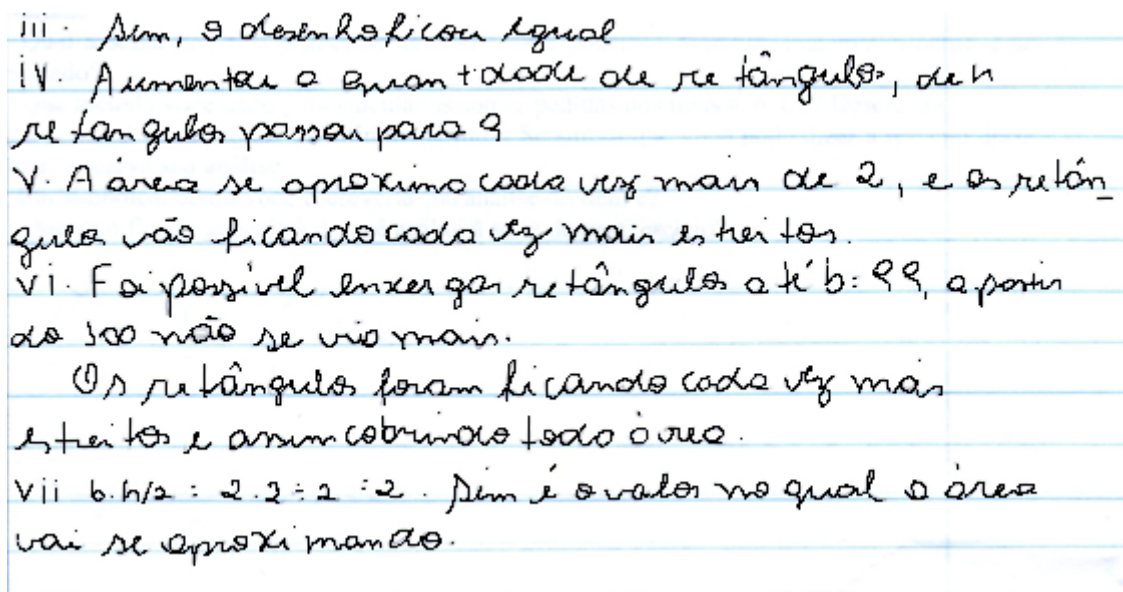 iii. Sim, o desenho ficou igual
iv. Aumentou a quantidade de retângulos, de 4
retangulos passou para 9
V. A área se aproxima cada vez mais de 2, e os retân_
gulos vão ficando cada vez mais estreitos.
vi. Foi possivel enxergar retângulos até b: 99, a partir
do 100 não se viu mais.
Os retângulos foram ficando cada vez mais
estreitos e assim cobrindo toda área.
Vii b.h/2 = 2.2÷2 = 2. Sim é o valor no qual a área
vai se aproximando.